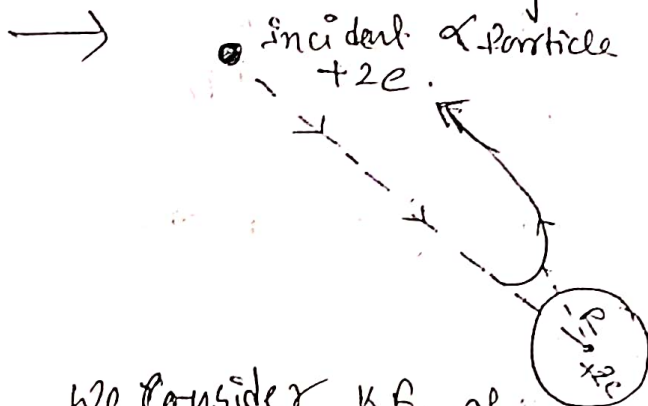 incident α Particle
+2e.
R
+2e
we Consider K.E. of